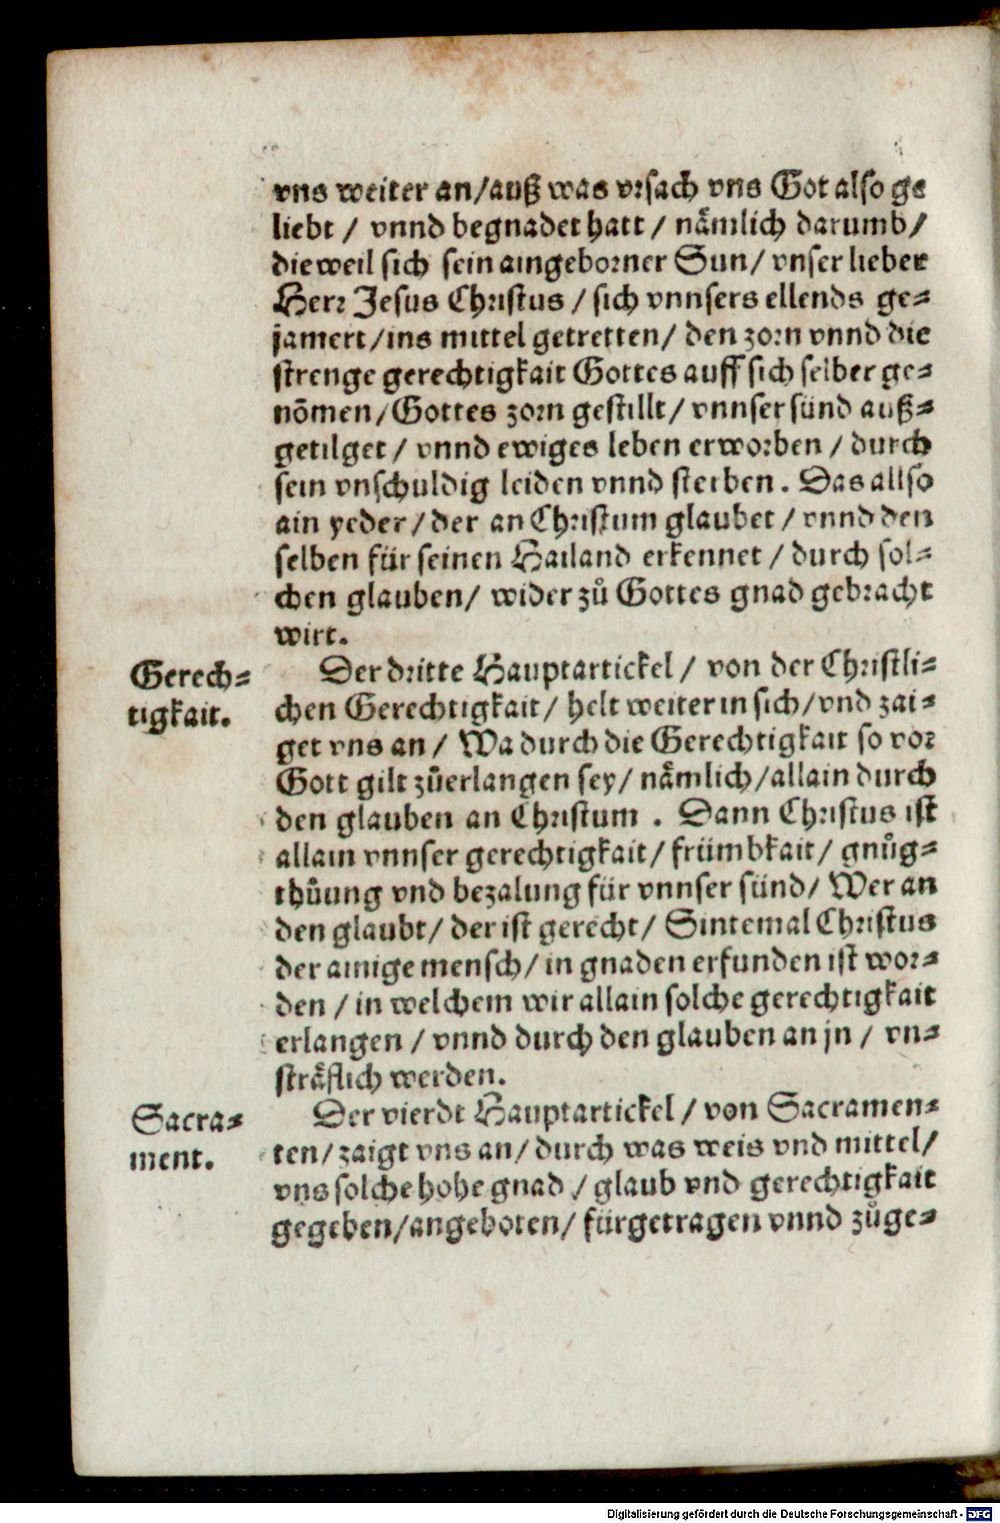 vns weiter an/auß was vrsach vns Got also ge
liebt / vnnd begnadet hatt / nämlich darumb/
die weil sich sein aingeborner Sun/ vnser lieber
Herr Jesus Christus / sich vnnsers ellends ge=
jamert/ins mittel getretten/ den zorn vnnd die
strenge gerechtigkait Gottes auff sich selber ge=
nõmen/Gottes zorn gestillt/ vnnser sünd auß=
getilget / vnnd ewiges leben erworben / durch
sein vnschuldig leiden vnnd sterben. Das allso
ain yeder/der an Christum glaubet / vnnd den
selben für seinen Hailand erkennet / durch sol=
chen glauben/ wider zů Gottes gnad gebracht
wirt.
Gerech=
tigkait.
Der dritte Hauptartickel / von der Christli=
chen Gerechtigkait/ helt weiter in sich/vnd zai=
get vns an / Wa durch die Gerechtigkait so vor
Gott gilt zůerlangen sey/ nämlich/allain durch
den glauben an Christum . Dann Christus ist
allain vnnser gerechtigkait/ frümbkait/ gnůg=
thůung vnd bezalung für vnnser sünd/ Wer an
den glaubt/ der ist gerecht/ Sintemal Christus
der ainige mensch/ in gnaden erfunden ist wor=
den / in welchem wir allain solche gerechtigkait
erlangen / vnnd durch den glauben an jn / vn=
sträflich werden.
Sacra=
ment.
Der vierdt Hauptartickel / von Sacramen=
ten/ zaigt vns an/ durch was weis vnd mittel/
vns solche hohe gnad / glaub vnd gerechtigkait
gegeben/angeboten/ fürgetragen vnnd zůge=
Digitalisierung gefördert durch die Deutsche Forschungsgemeinschaft - DFG